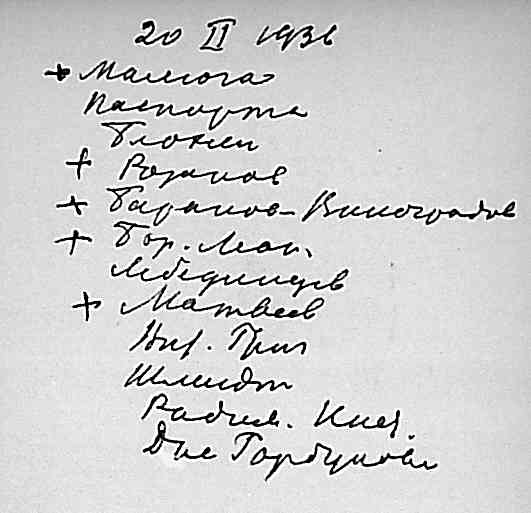 20 II 1936
+ Малюга
Паспорта
Блохин
+ Розанов
+ Баранов-Виноградов
+ Бор. Леон.
Лебединцев
+ Матвеев
Вир. Григ
Шмидт
Радием. Инст.
Для Горбунова